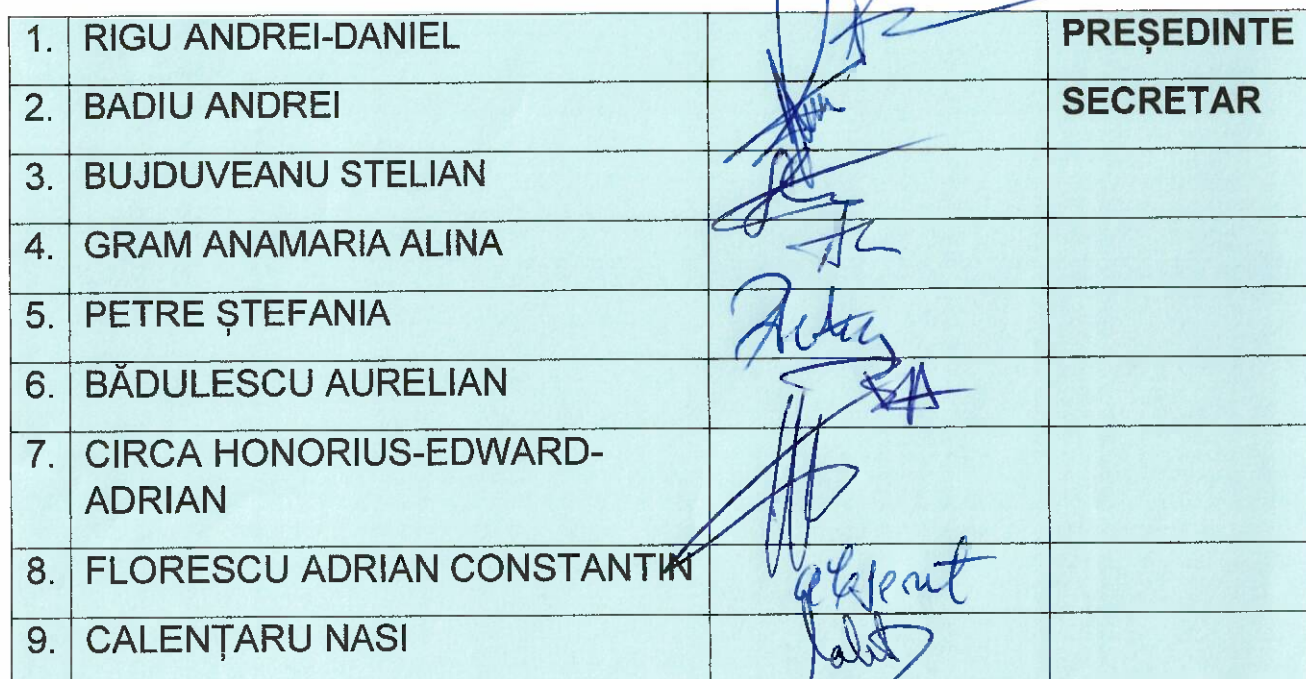 1. RIGU ANDREI-DANIEL PREȘEDINTE
2. BADIU ANDREI SECRETAR
3. BUJDUVEANU STELIAN
4. GRAM ANAMARIA ALINA
5. PETRE ȘTEFANIA
6. BĂDULESCU AURELIAN
7. CIRCA HONORIUS-EDWARD-
ADRIAN
8. FLORESCU ADRIAN CONSTANTIN
9. CALENȚARU NASI